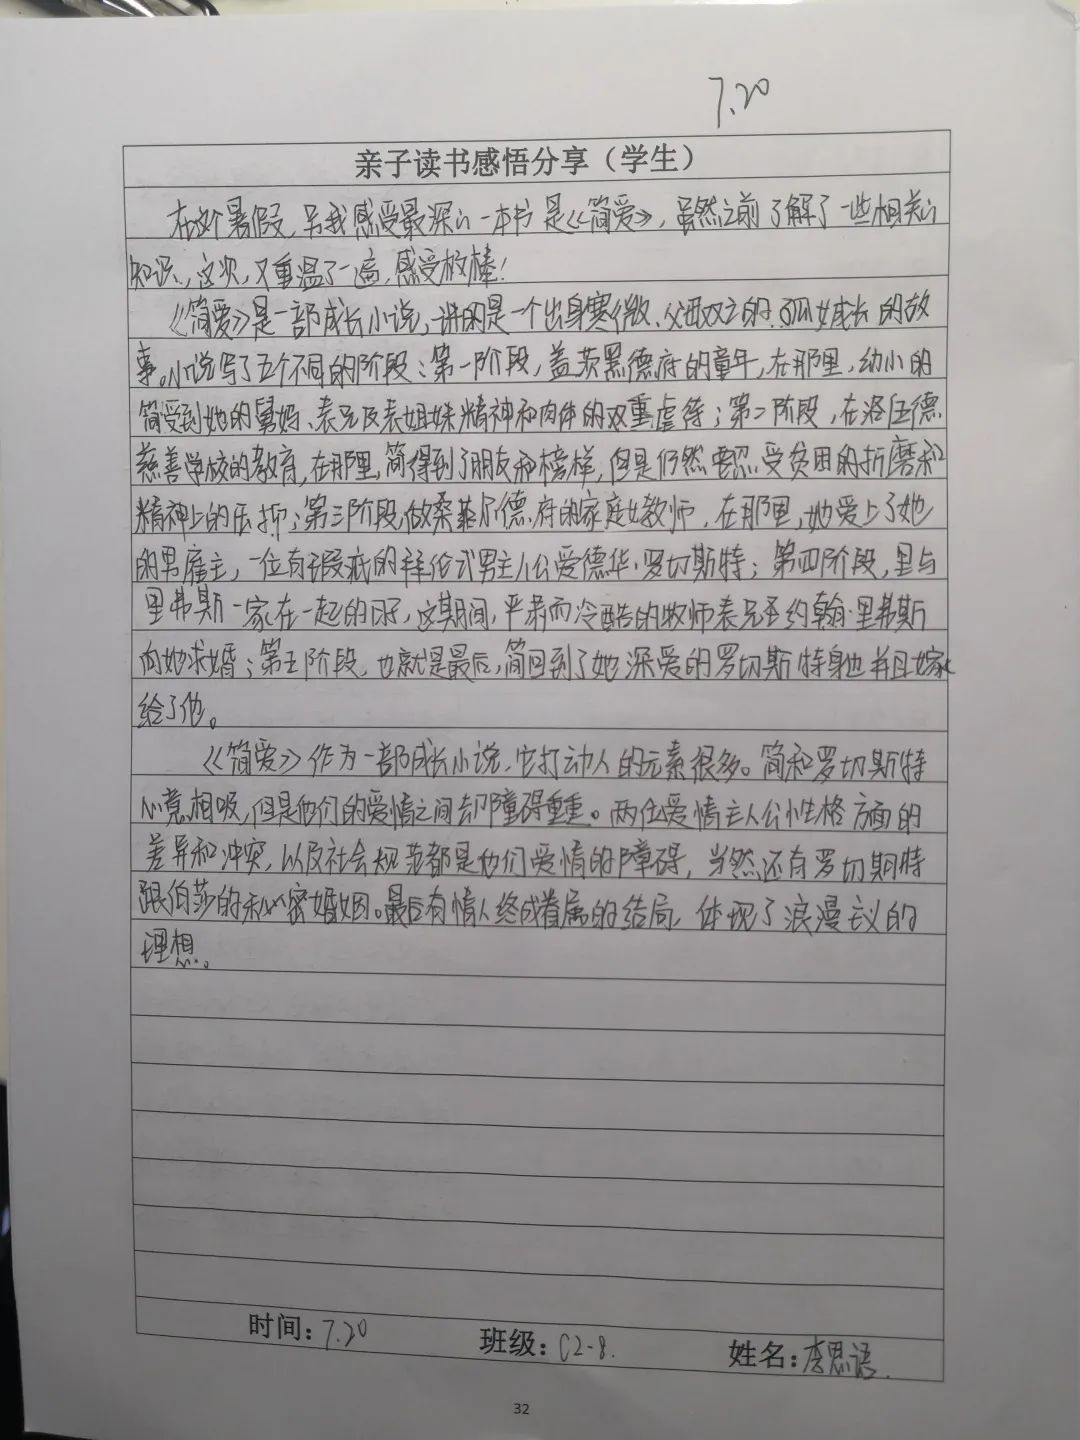 7.20
亲子读书感悟分享（学生）
在这个暑假，另我感受最深的一本书是《简爱》，虽然之前了解了一些相关的
知识，这次，又重温了一遍，感受极棒！
《简爱》是一部成长小说，讲的是一个出身寒微、父母双亡的孤女成长的故
事。小说写了五个不同的阶段：第一阶段，盖茨黑德府的童年，在那里，幼小的
简受到她的舅妈、表兄及表姐妹精神和肉体的双重虐待；第二阶段，在洛伍德
慈善学校的教育，在那里，简得到了朋友和榜样，但是仍然要忍受贫困的折磨和
精神上的压抑；第三阶段，做桑菲尔德府的家庭女教师，在那里，她爱上了她
的男雇主，一位有瑕疵的拜伦式男主人公爱德华·罗切斯特；第四阶段，里与
里弗斯一家在一起的日子，这期间，严肃而冷酷的牧师表兄圣约翰·里弗斯
向她求婚；第五阶段，也就是最后，简回到了她深爱的罗切斯特身边并且嫁
给了他。
《简爱》作为一部成长小说，它打动人的元素很多。简和罗切斯特
心意相吸，但是他们的爱情之间却障碍重重。两位爱情主人公性格方面的
差异和冲突，以及社会规范都是他们爱情的障碍，当然还有罗切斯特
跟伯莎的秘密婚姻。最后有情人终成眷属的结局，体现了浪漫主议的
理想。
时间：7.20 班级：C2-8. 姓名：李思语.
32